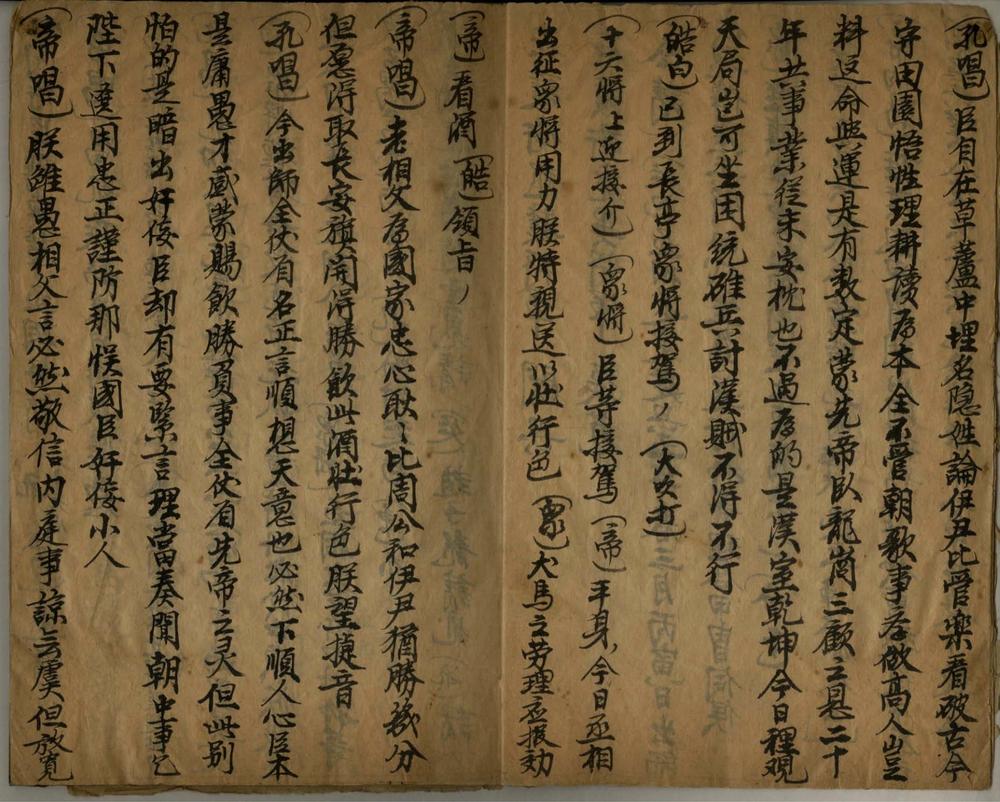 (孔唱)臣自在草蘆中埋名隐姓論伊尹比管樂看破古今
守田園悟性理耕讀為本全不管朝歌事存做高人豈
料這命與運是有数定蒙先帝臥龍崗三顧之恩二十
年共事業從未安枕也不過為的是漢室乾坤今日裡观
天局豈可坐困統雄兵討漢賊不得不行
(皓白)已到長亭眾將接駕(大吹打)
(十六將上迎接介)(眾將)臣等接駕(帝)平身今日丞相
出征眾將用力朕特親送以壯行色(眾)犬馬之劳理应报効
(帝)看酒(皓)領旨
(帝唱)老相父為國家忠心耿〻比周公和伊尹猶勝幾分
但愿得取長安旗開得勝飲此酒壯行色朕望捷音
(孔唱)今出師全仗有名正言順想天意也必然下順人心臣本
是庸愚才感蒙賜飲勝負事全仗有先帝之灵但此别
怕的是暗出奸佞臣却有要緊言理當奏聞朝中事乞
陛下選用忠正謹防那悞國臣奸佞小人
(帝唱)朕雖愚相父言必然敬信内庭事諒無虞但放寛